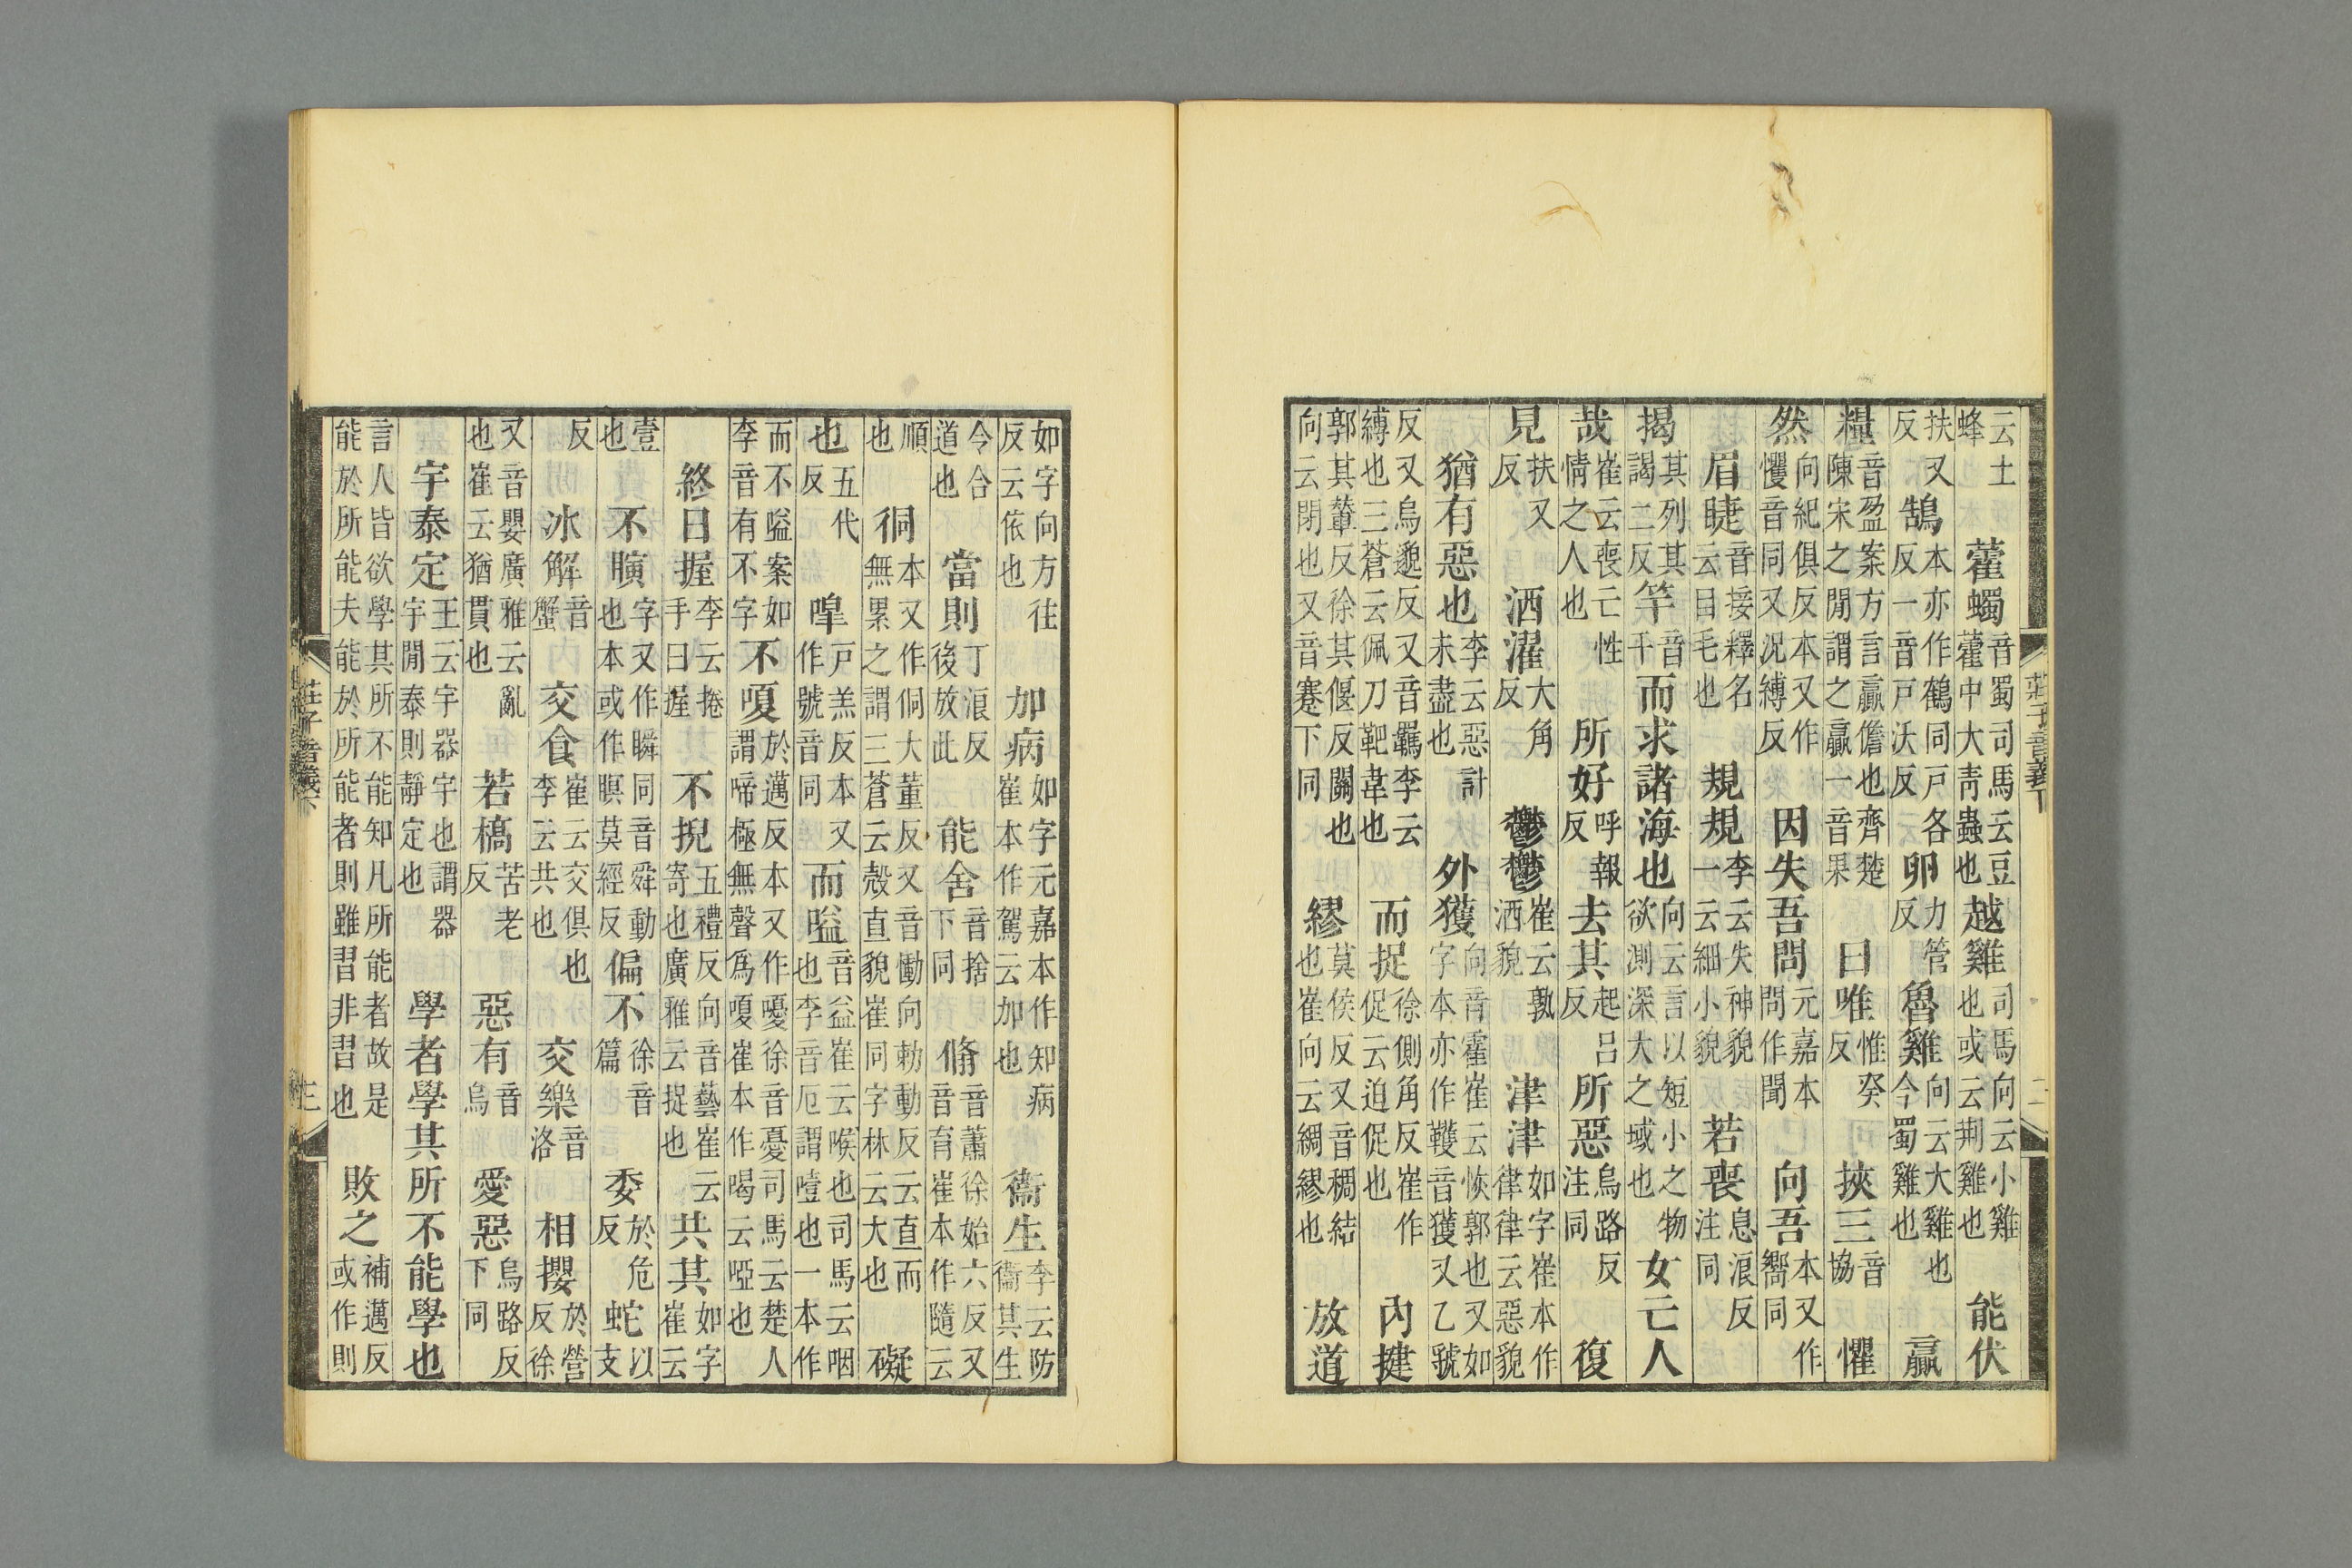 莊子音義下
二
云土蜂藿蠋音蜀司馬云豆藿中大青蟲也越雞司馬向云小雞也或云荆雞也能伏
扶又反鵠本亦作鶴同戸各反一音戸沃反卵力管反魯雞向云大雞也今蜀雞也贏
糧音盈案方言贏儋也齊楚陳宋之閒謂之贏一音果曰唯惟癸反挾三音協懼
然向紀俱反本又作戄音同又況縛反因失吾問元嘉本問作聞向吾本又作嚮同
眉睫音接釋名云目毛也規規李云失神貌一云細小貌若喪息浪反注同
揭其列其謁二反竿音干而求諸海也向云言以短小之物欲測深大之域也女亡人
哉崔云喪亡性情之人也所好呼報反去其起呂反所惡烏路反注同復
見扶又反洒濯大角反鬱鬱崔云孰洒貌津津如字崔本作律律云惡貌
猶有惡也李云惡計未盡也外獲向音霍崔云恢郭也又如字本亦作韄音獲又乙虢
反又烏邈反又音羈李云縛也三蒼云佩刀靶韋也而捉徐側角反崔作促云迫促也內揵
郭其輦反徐其偃反關也向云閉也又音蹇下同繆莫侯反又音稠結也崔向云綢繆也放道
如字向方往反云依也加病如字元嘉本作知病崔本作駕云加也衞生李云防衞其生
令合道也當則丁浪反後放此能舍音捨下同翛音蕭徐始六反又音育崔本作隨云
順也㣚本又作侗大董反又音慟向勅動反云直而無累之謂三蒼云殻直貌崔同字林云大也礙
也五代反嘷戸羔反本又作號音同而嗌音益崔云喉也司馬云咽也李音厄謂噎也一本作
而不嗌案如李音有不字不嗄於邁反本又作嚘徐音憂司馬云楚人謂啼極無聲爲嗄崔本作喝云啞也
終日握李云捲手曰握不掜五禮反向音藝崔云寄也廣雅云捉也共其如字崔云
壹也不瞚字又作瞬同音舜動也本或作瞑莫經反偏不徐音篇委於危反蛇以支
反冰解音蟹交食崔云交俱也李云共也交樂音洛相攖於營反徐
又音嬰廣雅云亂也崔云猶貫也若槁苦老反惡有音烏愛惡烏路反下同
宇泰定王云宇器宇也謂器宇閒泰則靜定也學者學其所不能學也
言人皆欲學其所不能知凡所能者故是能於所能夫能於所能者則雖習非習也敗之補邁反或作則
莊子音義下